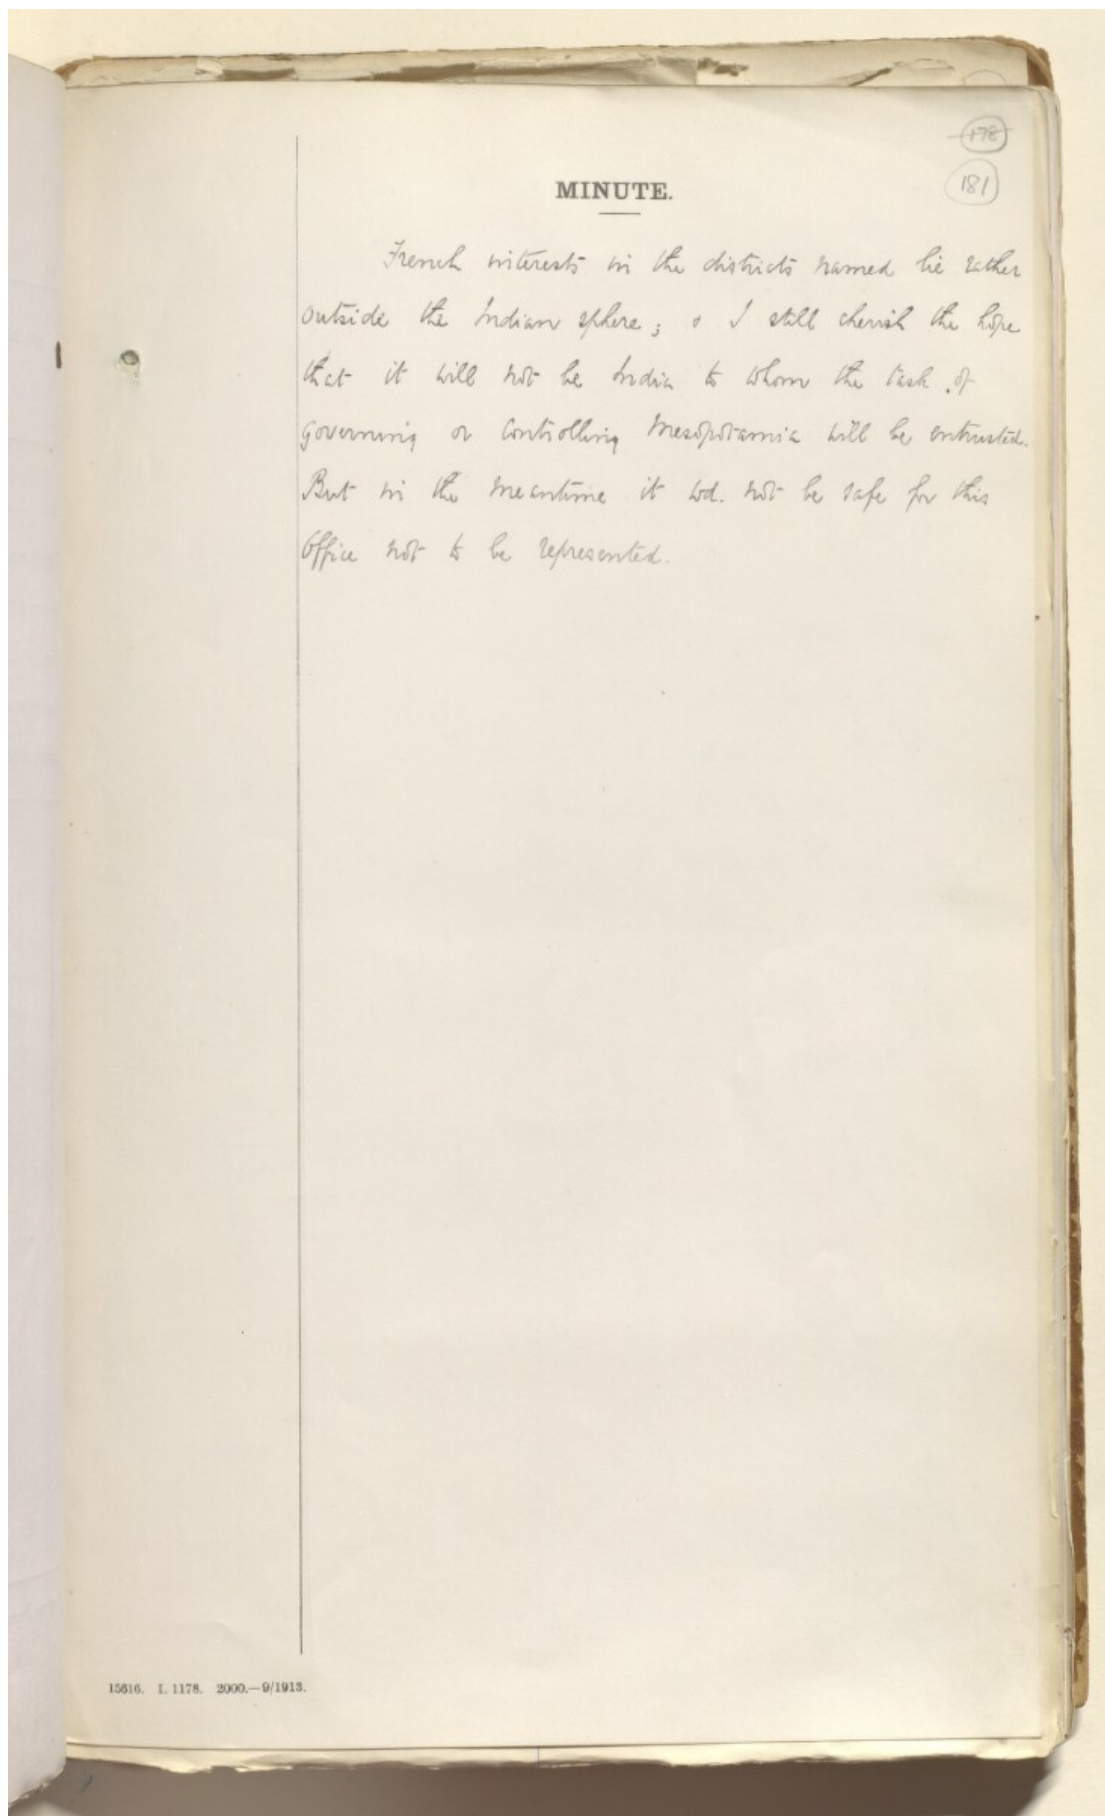 178
181
MINUTE.
French interests in the districts named lie rather
outside the Indian sphere; & I still cherish the hope
that it will not be India to whom the task of
governing or controlling Mesopotamia will be entrusted.
But in the meantime it wd. not be safe for this
Office not to be represented.
15616. I. 1178. 2000.—9/1913.